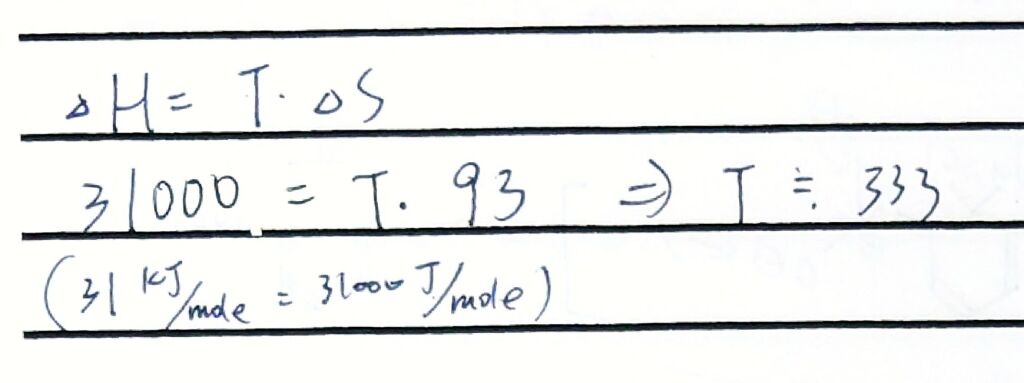 △H = T·△S
31000 = T·93 ⇒ T ≒ 333
(31 kJ/mole = 31000 J/mole)